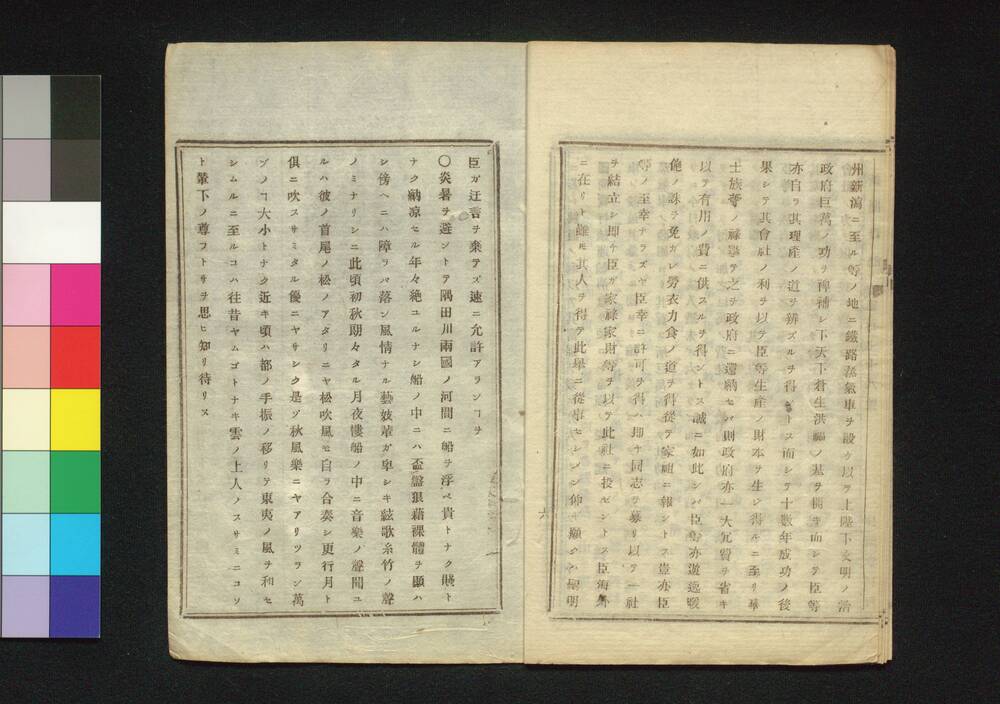 州新潟ニ至ル等ノ地ニ鐵路蒸氣車ヲ設ケ以テ上陛下文明ノ治
政府巨萬ノ功ヲ裨補シ下天下蒼生洪福ノ基ヲ開キ而シテ臣等
亦自ラ其理産ノ道ヲ辨ズルヲ得ントス而シテ十數年成功ノ後
果シテ其會社ノ利ヲ以テ臣等生産ノ財本ヲ生シ得ルニ至リ華
士族等ノ祿擧テ之ヲ政府ニ還納セバ則政府亦一大冗費ヲ省キ
以テ有用ノ費ニ供スルヲ得ントス誠ニ如此シバ臣等亦遊逸暖
飽ノ誅ヲ免カレ勞衣力食ノ道ヲ得從テ家祖ニ報ントス豈亦臣
等ノ至幸ナラズヤ臣幸ニ許可ヲ得ハ即チ同志ヲ募リ以テ一社
ヲ結立シ即チ臣ガ家祿家財等ヲ以テ此社ニ投ゼントス臣海外
ニ在リト雖モ其人ヲ得テ此擧ニ從事セシメン仰キ願クハ聖明
臣ガ迂言ヲ棄テズ速ニ允許アランヿヲ
〇炎暑ヲ避ントテ隅田川兩國ノ河間ニ船ヲ浮ベ貴トナク賤ト
ナク納凉セル年々絶ユルナシ船ノ中ニハ盃盤狼藉裸體ヲ顯ハ
シ傍ヘニハ障ラバ落ン風情ナル藝妓輩ガ卑シキ絃歌糸竹ノ聲
ノミナリシニ此頃初秋期々タル月夜樓船ノ中ニ音樂ノ聲聞ユ
ルハ彼ノ首尾ノ松ノアタリニヤ松吹風モ自ラ合奏シ更行月ト
倶ニ吹スサミタル優ニヤサシク是ゾ秋風樂ニヤアリツラン萬
ヅノヿ大小トナク近キ頃ハ都ノ手振ノ移リテ東夷ノ風ヲ和セ
シムルニ至ルコハ往昔ヤムゴトナキ雲ノ上人ノスサミニコソ
ト輦下ノ尊フトサヲ思ヒ知リ待リヌ